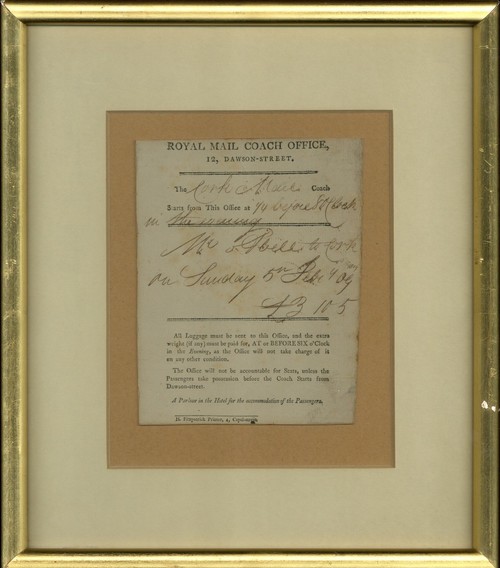 ROYAL MAIL COACH OFFICE,
12, DAWSON-STREET.
The Cork Mail Coach
Starts from This Office at 1/4 before 8 O'Clock
in the evening
Mr to Cork
on Sunday 5th Feby 09
£3 10 5
All Luggage must be sent to this Office, and the extra
weight (if any) must be paid for, AT or BEFORE SIX o'Clock
in the Evening, as the Office will not take charge of is
on any other condition.
The Office will not be accountable for Seats, unless the
Passengers take possession before the Coach Starts from
DAWSON-street.
A Parlour in the Hotel for the accommodation of the Passengers.
H. Fitzpatrick Printer, 4, Capel-street.